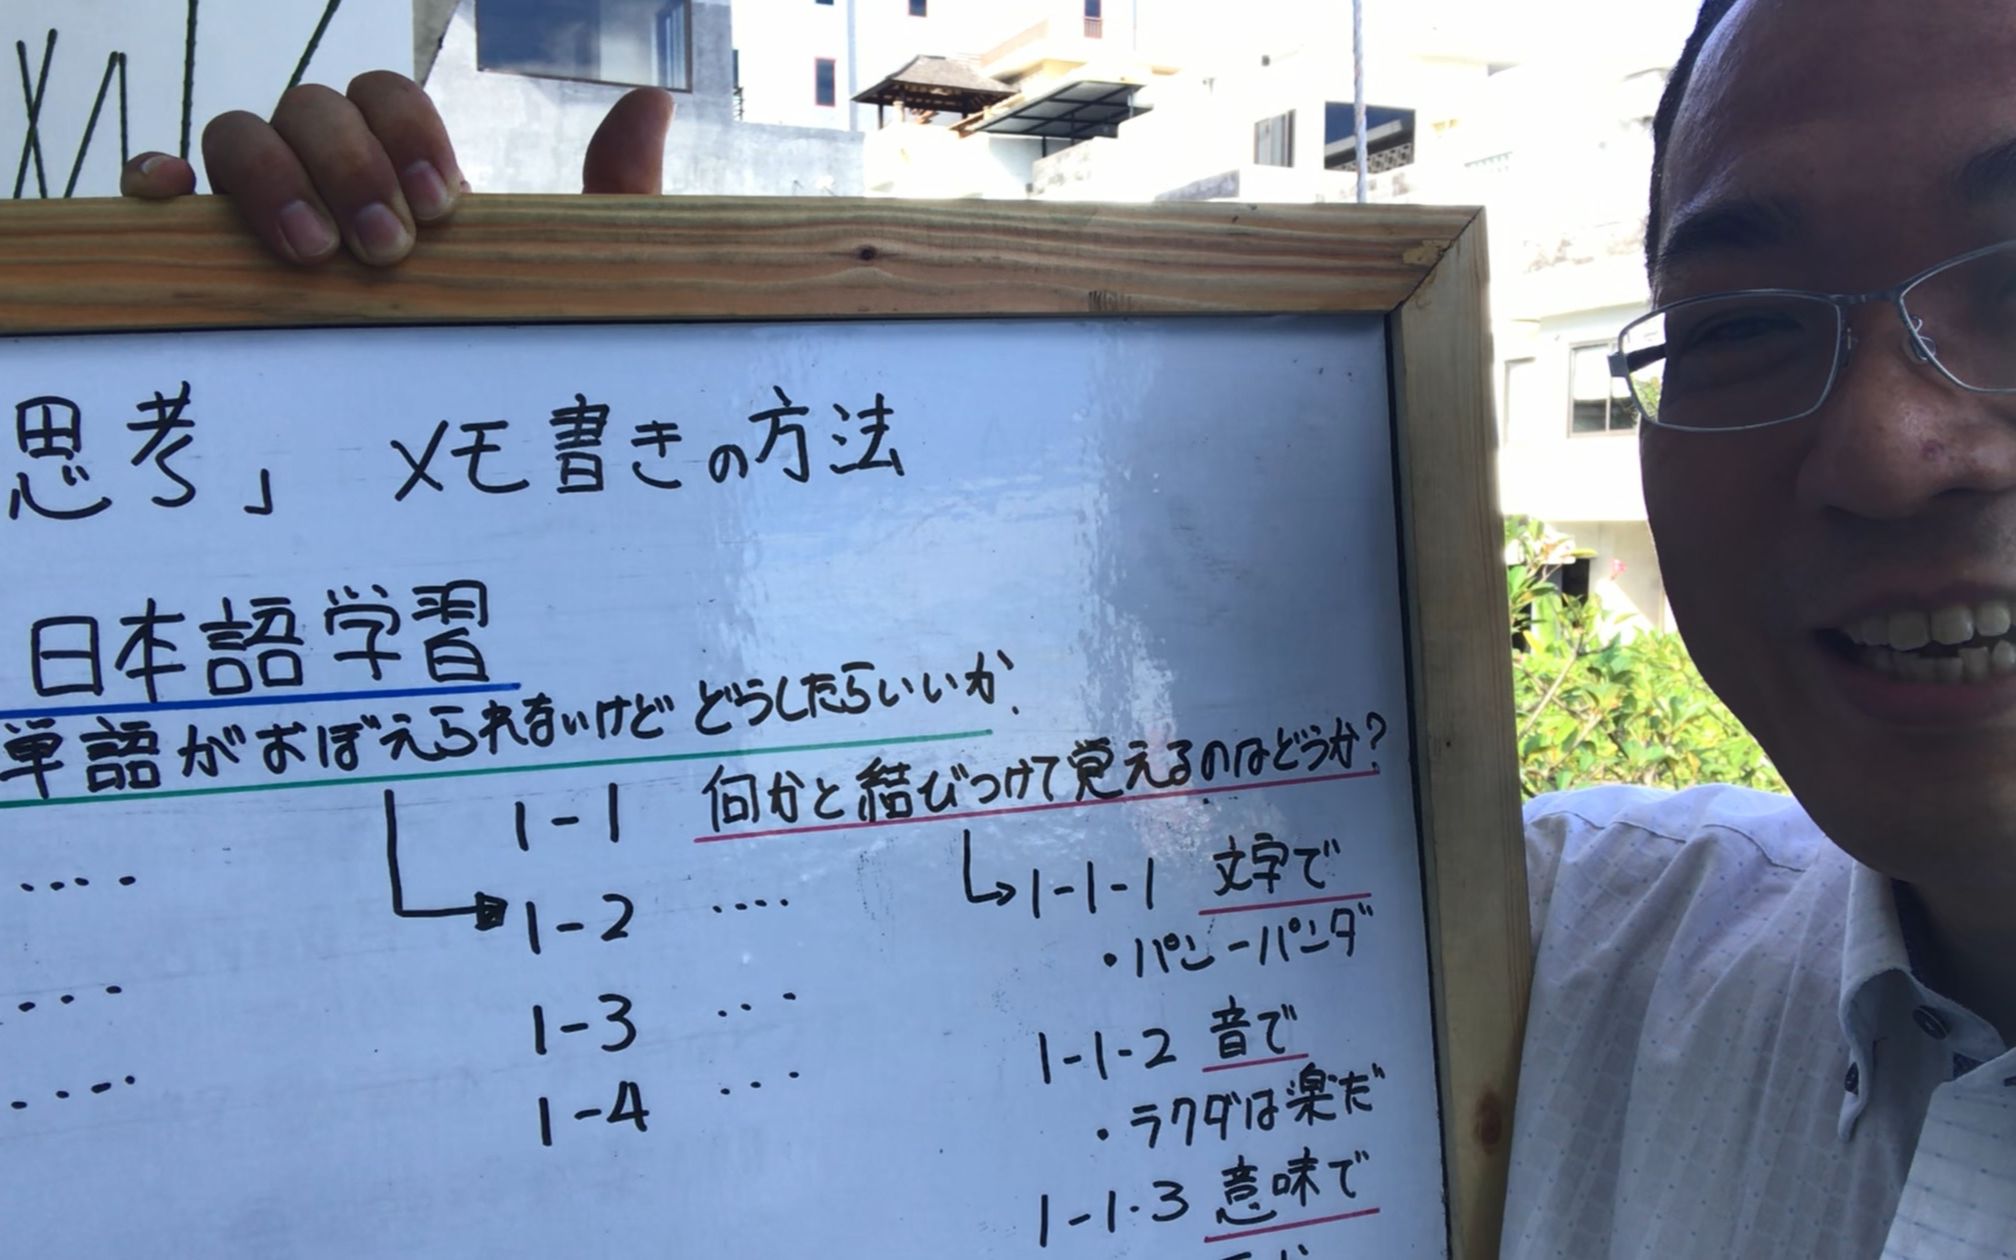 思考」 メモ書きの方法
日本語学習
単語がおぼえられないけど どうしたらいいか.
1-1 何かと結びつけて覚えるのはどうか?
....
1-2 ....
...
1-3 ...
....
1-4 ...
1-1-1 文字で
・パン-パンダ
1-1-2 音で
・ラクダは楽だ
1-1-3 意味で